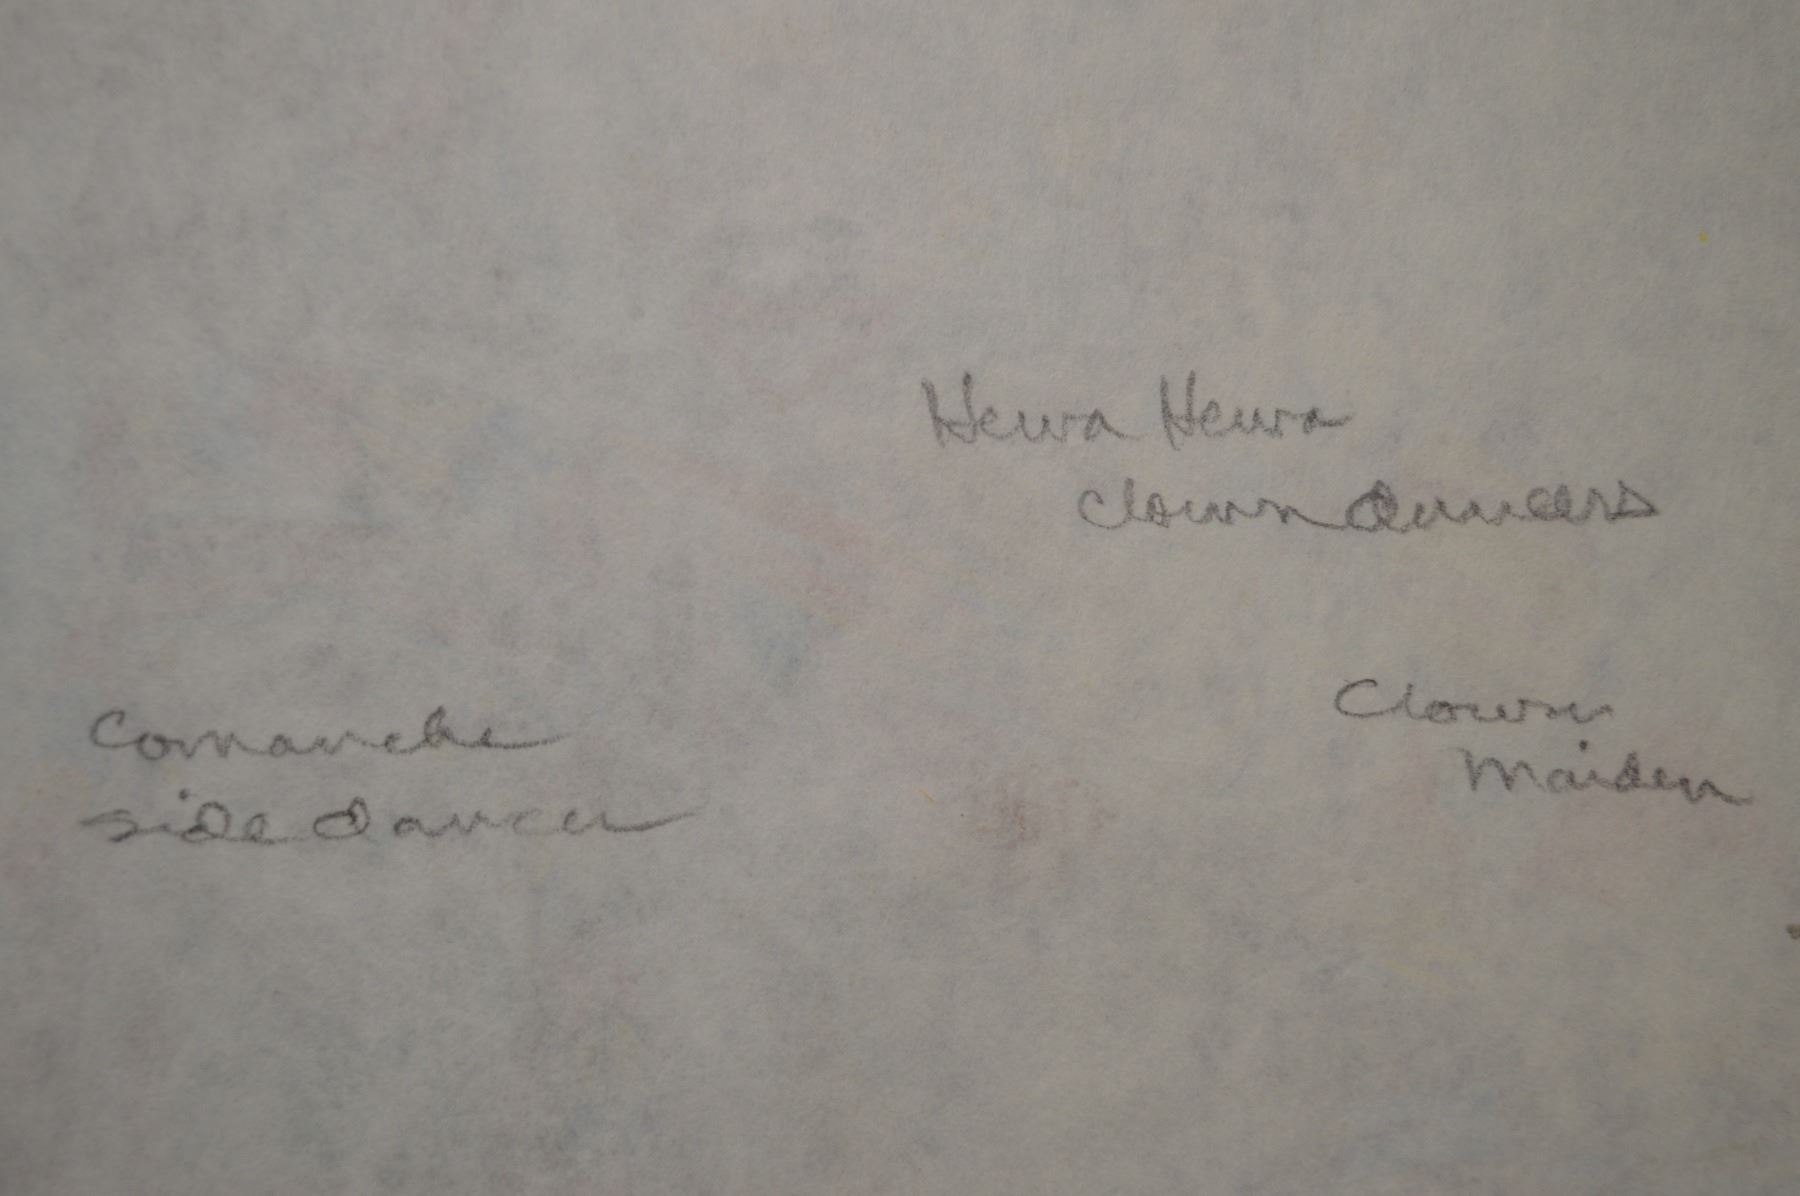 Hewa Hewa
clown dancers
Clown
Maiden
Comanche
side dancer